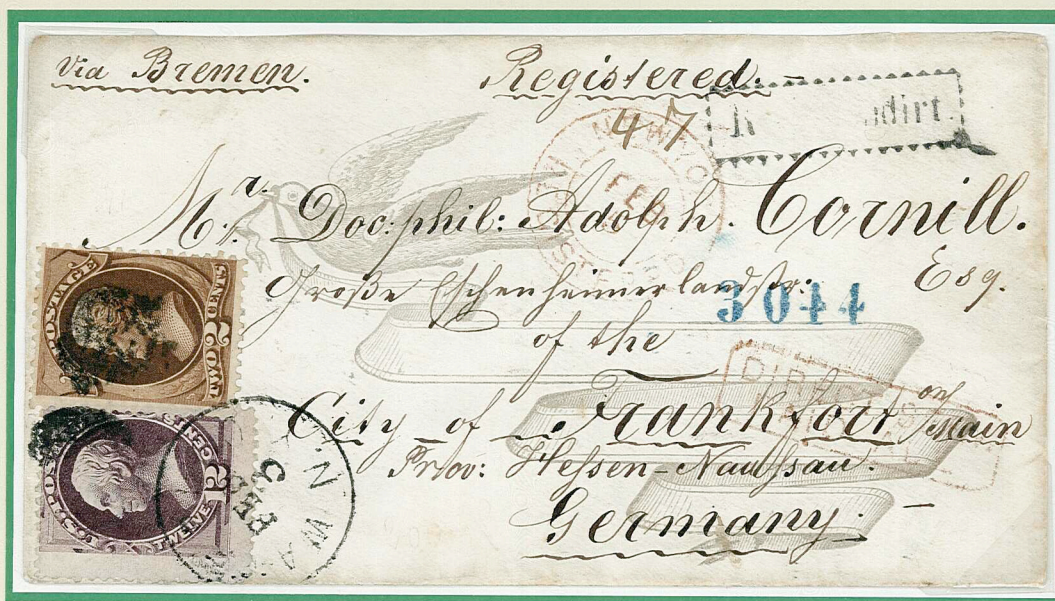 Via Bremen. Registered.
47
NEW YO
FEB
Mr. Doc: phil: Adolph. Cornill.
Große Eschenheimerlandstr: Esq.
3044
of the
City of Frankfort on Main
Prov: Hessen-Nassau.
Germany.
POSTAGE
TWO
CENTS
TWELVE
12
FEB
3